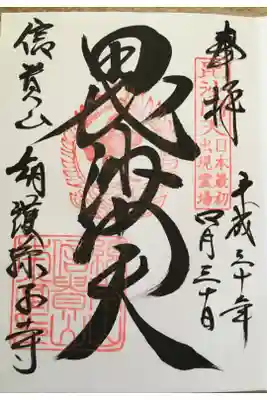 奉拝
平成三十年
四月三十日
毘沙門天
日本最初
出現霊場
毘沙門天
信貴山 朝護孫子寺
信貴山